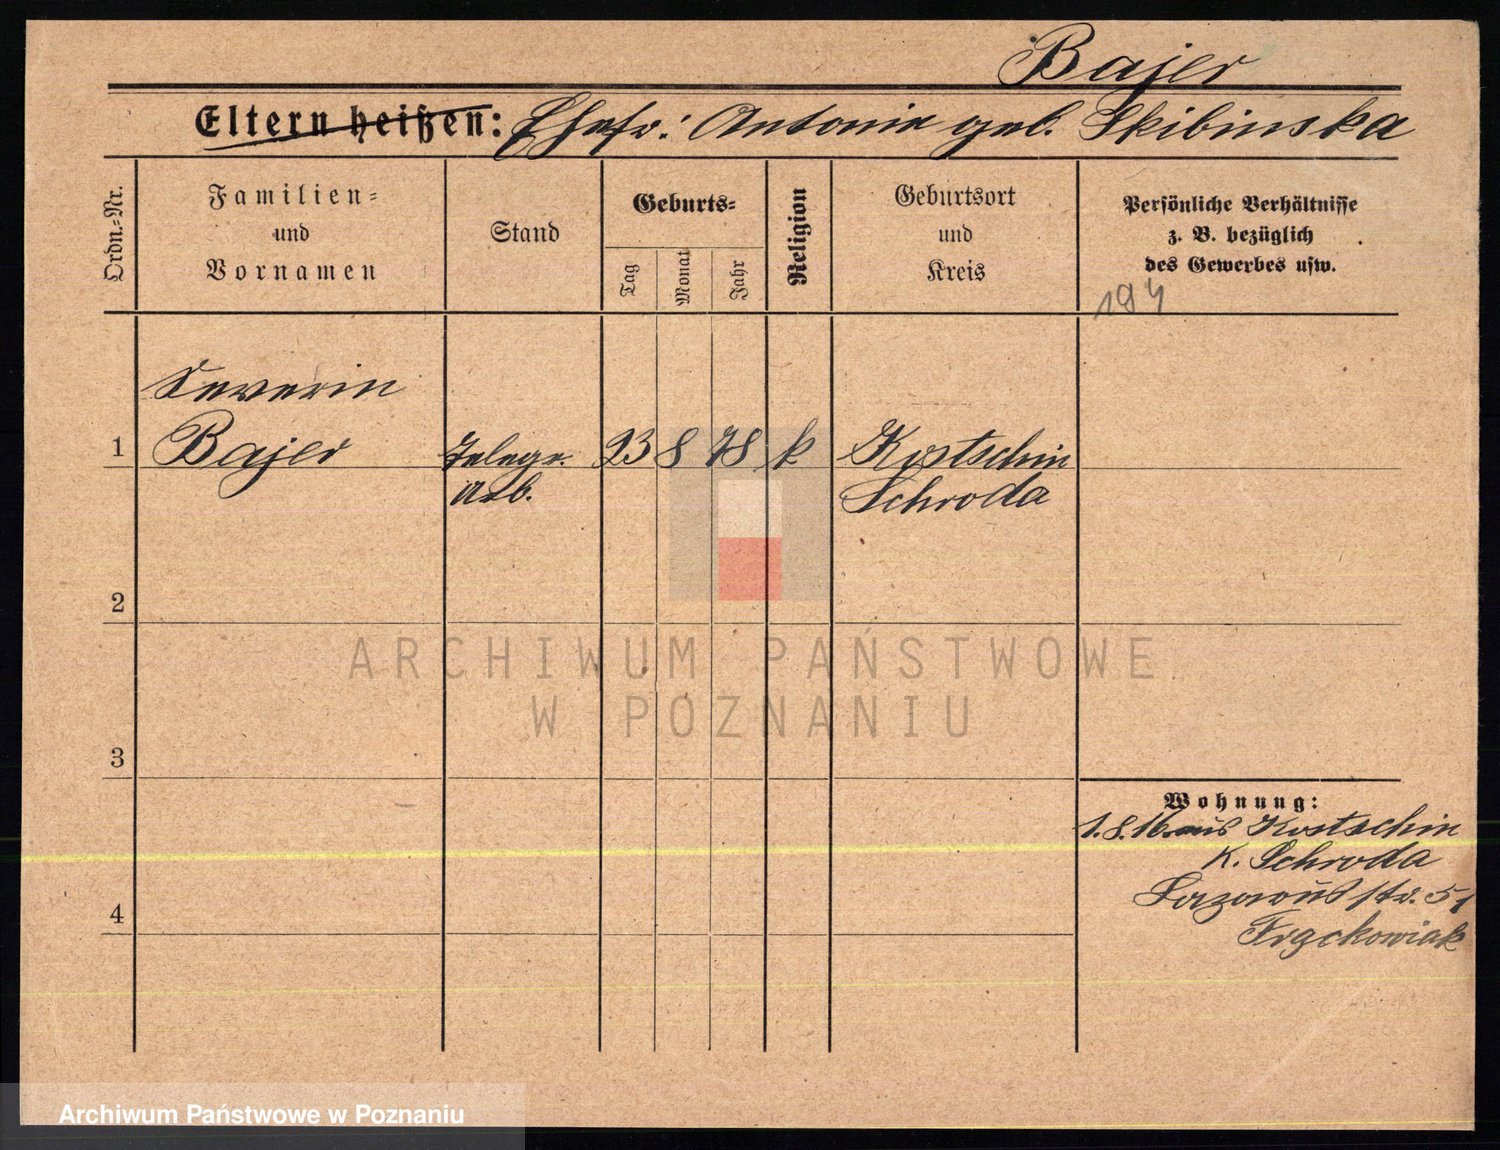 Bajer
Eltern heißen: Ehefr: Antonie geb. Skibinska
Ordn.-Nr.
Familien-
und
Vornamen
Stand
Geburts-
Tag
Monat
Jahr
Religion
Geburtsort
und
Kreis
Persönliche Verhältnisse
z. B. bezüglich
des Gewerbes usw.
194
Severin
1 Bajer Telegr. 23 8 78 k Kostschin
Arb. Schroda
2
ARCHIWUM PAŃSTWOWE
W POZNANIU
3
Wohnung:
1.8.16 aus Kostschin
K. Schroda
Lazarus str. 51
Frąckowiak
4
Archiwum Państwowe w Poznaniu